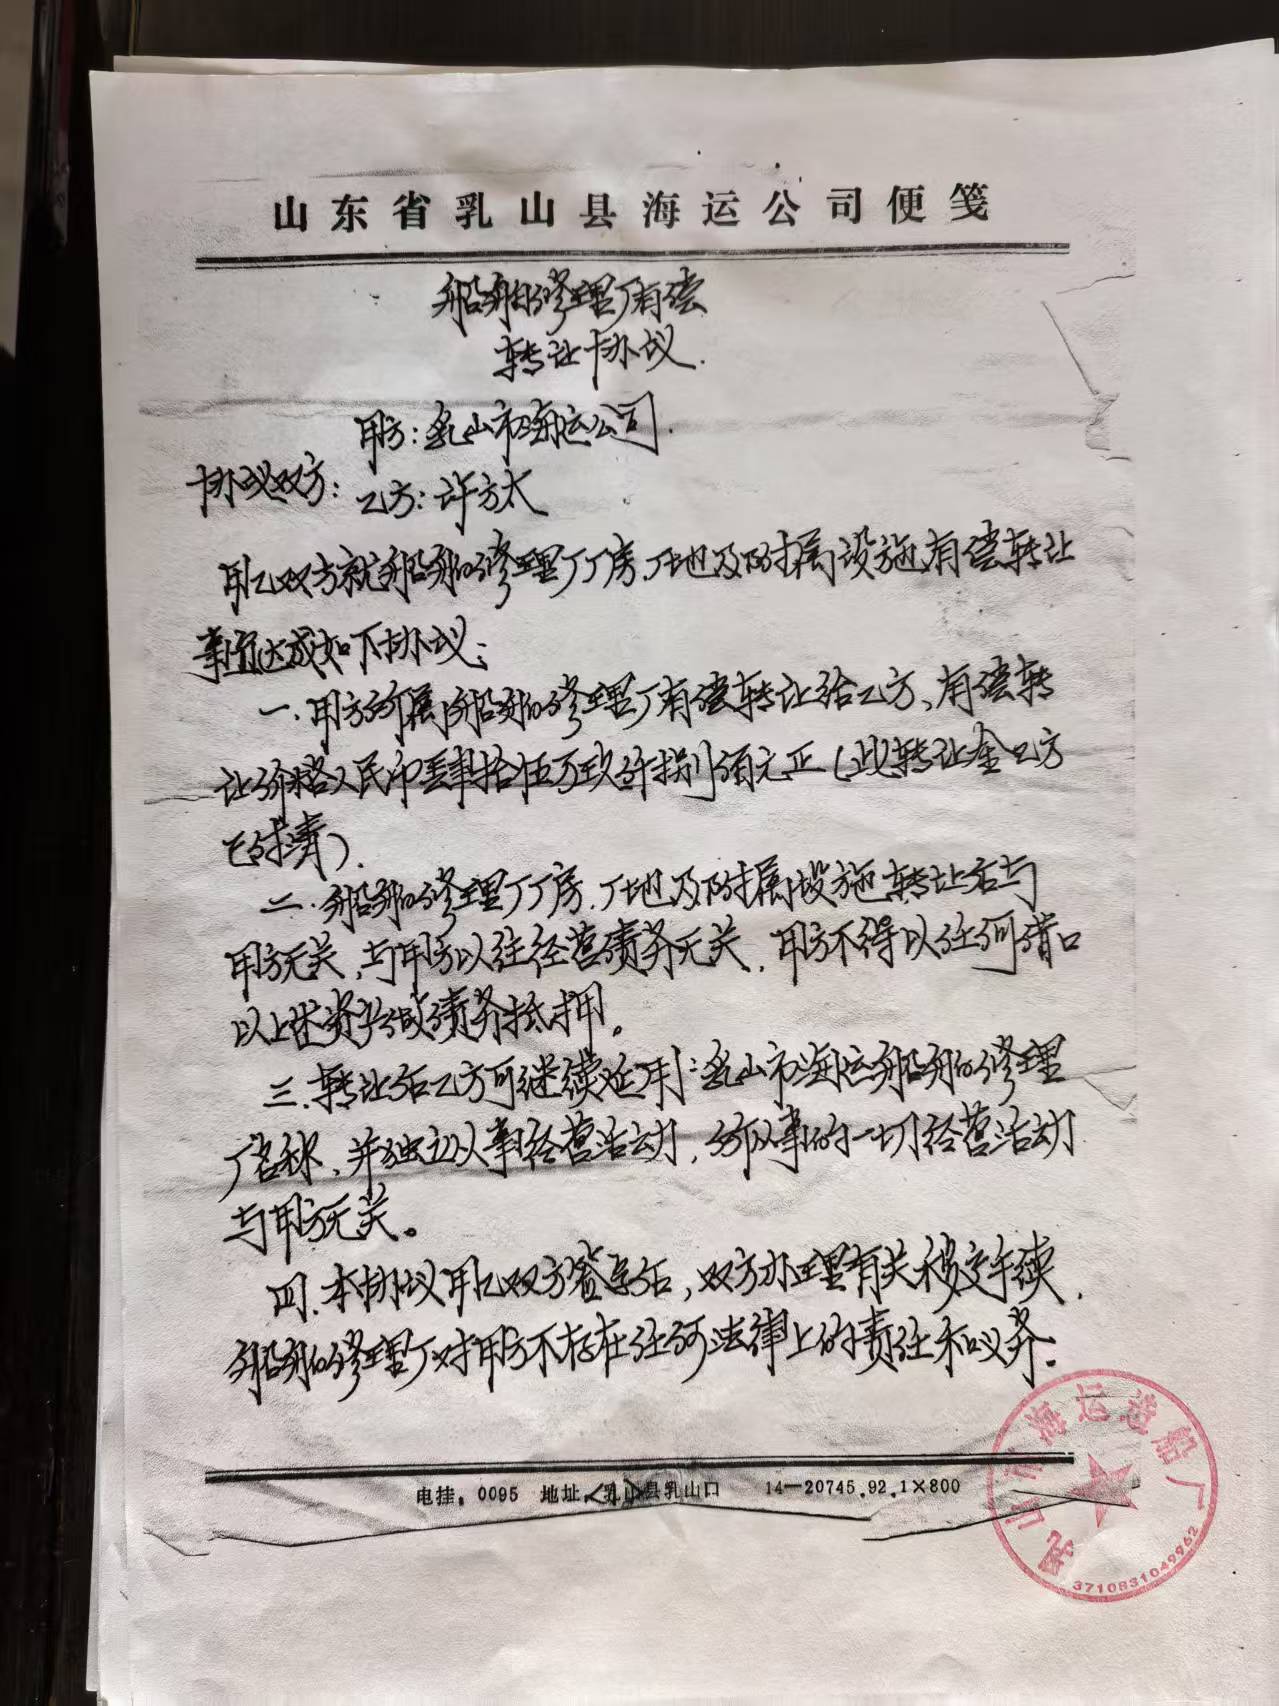 山东省乳山县海运公司便笺
船舶修理厂有偿
转让协议.
甲方:乳山市海运公司.
协议双方:
乙方:许方太
甲乙双方就船舶修理厂厂房、厂地及附属设施有偿转让
事宜达成如下协议:
一.甲方所属船舶修理厂有偿转让给乙方、有偿转
让价格人民币肆拾伍万玖仟捌佰元正(此转让金乙方
已付清).
二.船舶修理厂厂房、厂地及附属设施转让后与
甲方无关,与甲方以往经营债务无关,甲方不得以任何借口
以上述资产做债务抵押。
三.转让后乙方可继续延用:乳山市海运船舶修理
厂名称,并独立从事经营活动,所从事的一切经营活动
与甲方无关。
四.本协议甲乙双方签字后,双方办理有关移交手续.
船舶修理厂对甲方不存在任何法律上的责任和义务.
电挂:0095 地址:乳山县乳山口 14—20745.92.1×800
乳山市海运造船厂
3710831049962